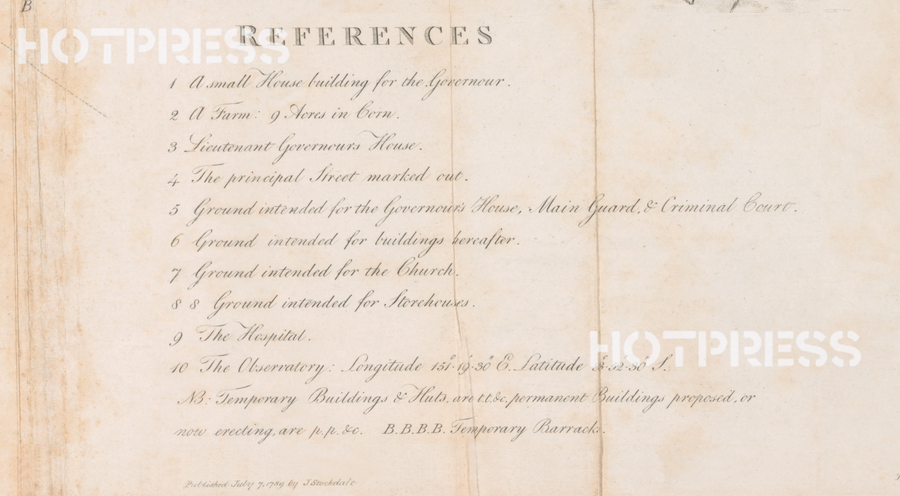 B
REFERENCES
1 A small House building for the Governour.
2 A Farm: 9 Acres in Corn.
3 Lieutenant Governours House.
4 The principal Street marked out.
5 Ground intended for the Governour's House, Main Guard, & Criminal Court.
6 Ground intended for buildings hereafter.
7 Ground intended for the Church.
8 8 Ground intended for Storehouses.
9 The Hospital.
10 The Observatory: Longitude 151°.19'.30" E. Latitude .52.30" S.
NB: Temporary Buildings & Huts, are t.t.&c. permanent Buildings proposed, or
now erecting, are p.p.&c. B.B.B.B. Temporary Barracks.
Published July 7, 1789 by J. Stockdale
HOTPRESS
HOTPRESS